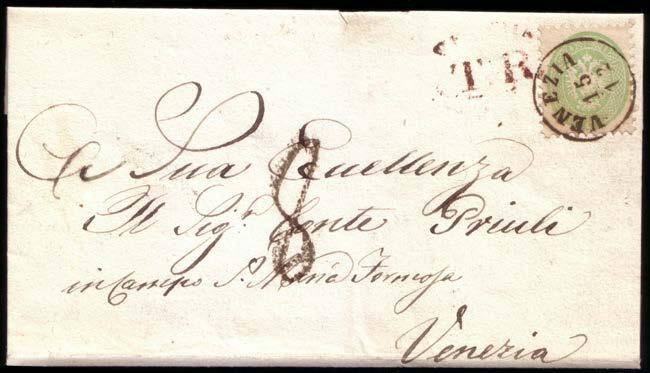 T. R.
VENEZIA
15
12
8
A Sua Eccellenza
Il Sig.r Conte Priuli
in Campo S. Maria Formosa
Venezia